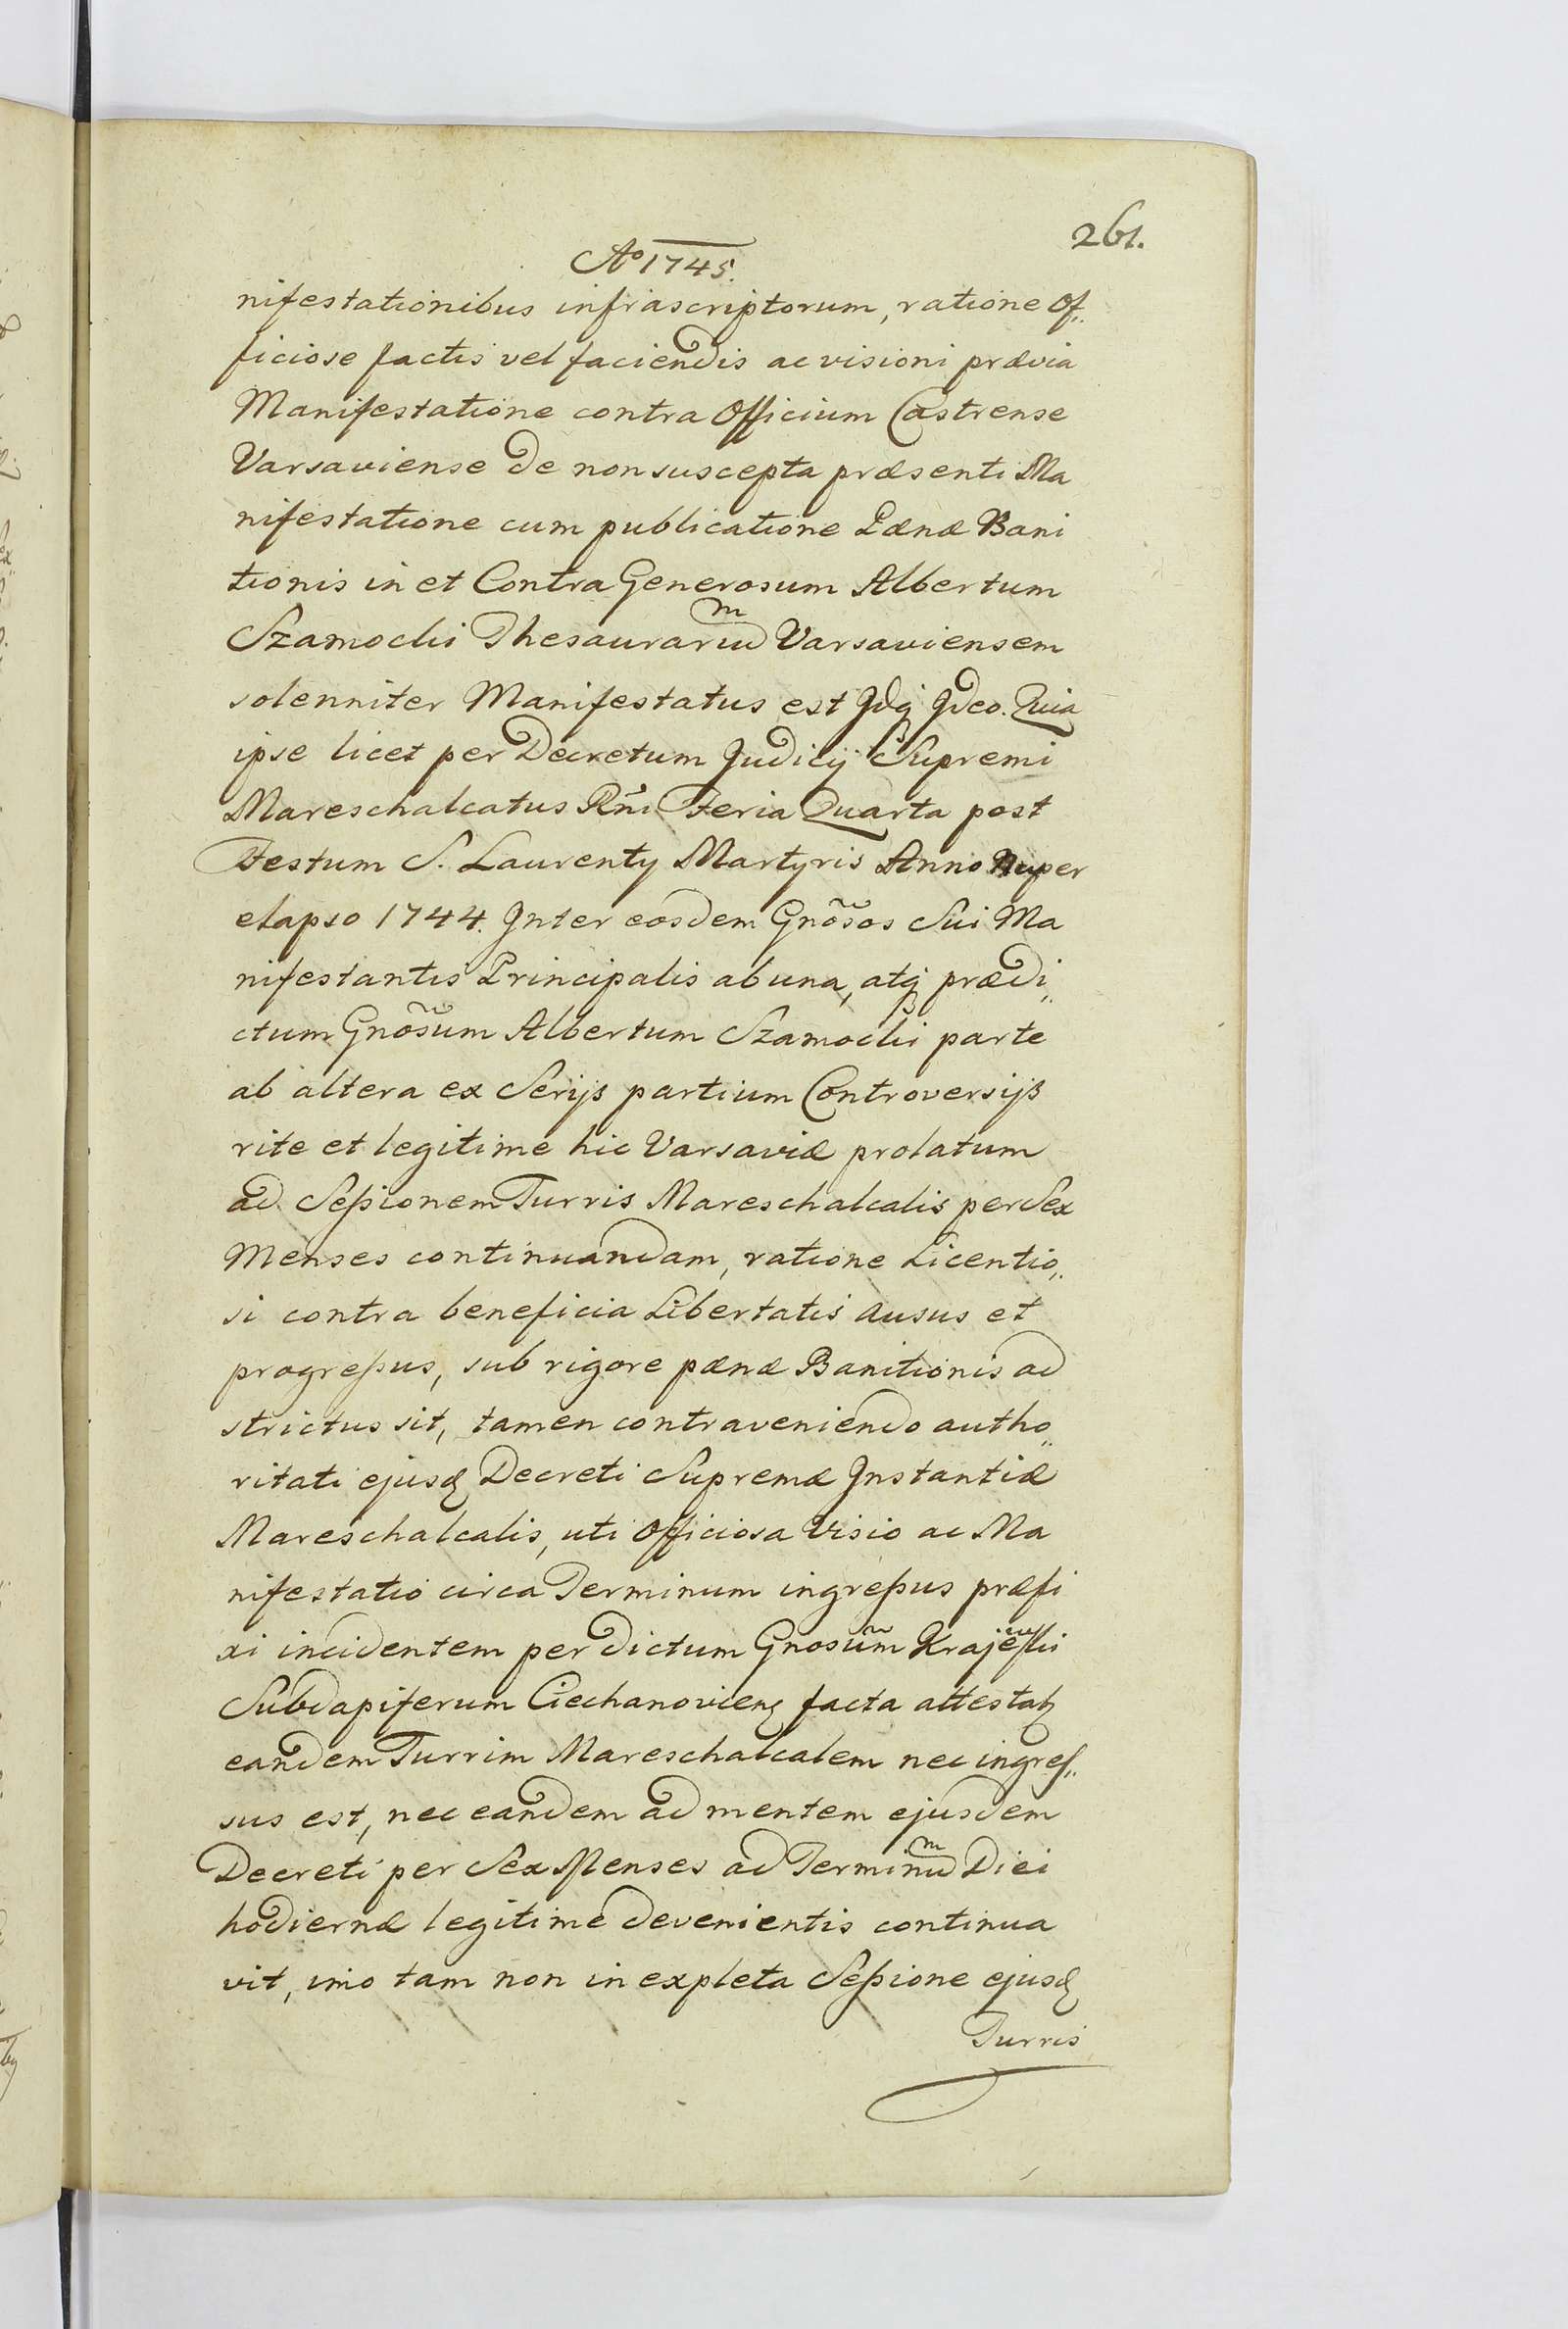 261.
Aº 1745.
nifestationibus infrascriptorum, ratione Of„
ficiose factis vel faciendis ac visioni prævia
Manifestatione contra Officium Castrense
Varsaviense de non suscepta præsenti Ma
nifestatione cum publicatione Pænæ Bani
tionis in et Contra Generosum Albertum
Szamocki Thesaurariũm Varsaviensem
solenniter Manifestatus est Idq; Ideo. Quia
ipse licet per Decretum Judicij Supremi
Mareschalcatus Rñi Feria Quarta post
Festum S. Laurentij Martyris Anno Nuper
elapso 1744. Inter eosdem Gnõsos Sui Ma
nifestantis Principalis ab una, atq; prædi„
ctum Gnõsum Albertum Szamocki parte
ab altera ex Serijs partium Controversijs
rite et legitime hic Varsaviæ prolatum
ad Seßionem Turris Mareschalcalis per Sex
Menses continuandam, ratione Licentio„
si contra beneficia Libertatis ausus et
progreßus, sub rigore pænæ Banitionis ad
strictus sit, tamen contraveniendo autho„
ritati ejusd Decreti Supremæ Instantiæ
Mareschalcalis, uti Officiosa Visio ac Ma
nifestatio circa Terminum ingreßus præfi
xi incidentem per dictum Gnosũm Krajewski
Subdapiferum Ciechanovien facta attestat
eandem Turrim Mareschalcalem nec ingres„
sus est, nec eandem ad mentem ejusdem
Decreti per Sex Menses ad Terminũm Diei
hodiernæ legitime devenientis continua
vit, imo tam non in expleta Seßione ejusd
Turris